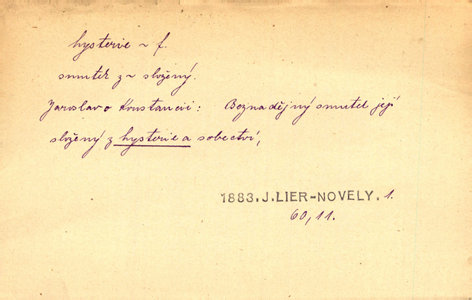 hysterie ~ f.
smutek z ~ složený.
Jaroslavo Konstancii: Beznadějný smutek její
složený z hysterie a sobectví,
1883. J. LIER-NOVELY. 1.
60, 11.